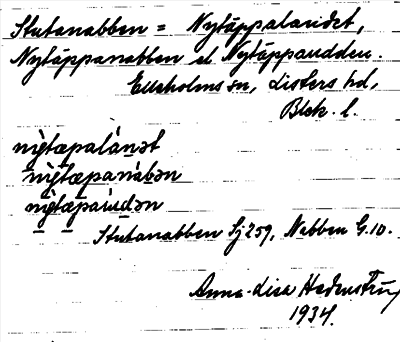 Stutanabben = Nytäppalandet,
Nytäppanabben el Nytäppaudden.
Elleholms sn, Listers hd,
Blek. l.
nỳgtæpalánət
nỳgtæpanàbən
nỳgtæpaùdən
Stutanabben Sj 259, Nabben G. 10.
Anna-Lisa Hedenström
1934.